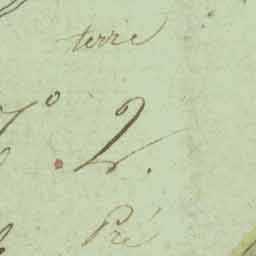 terre
7° 2.
Pré